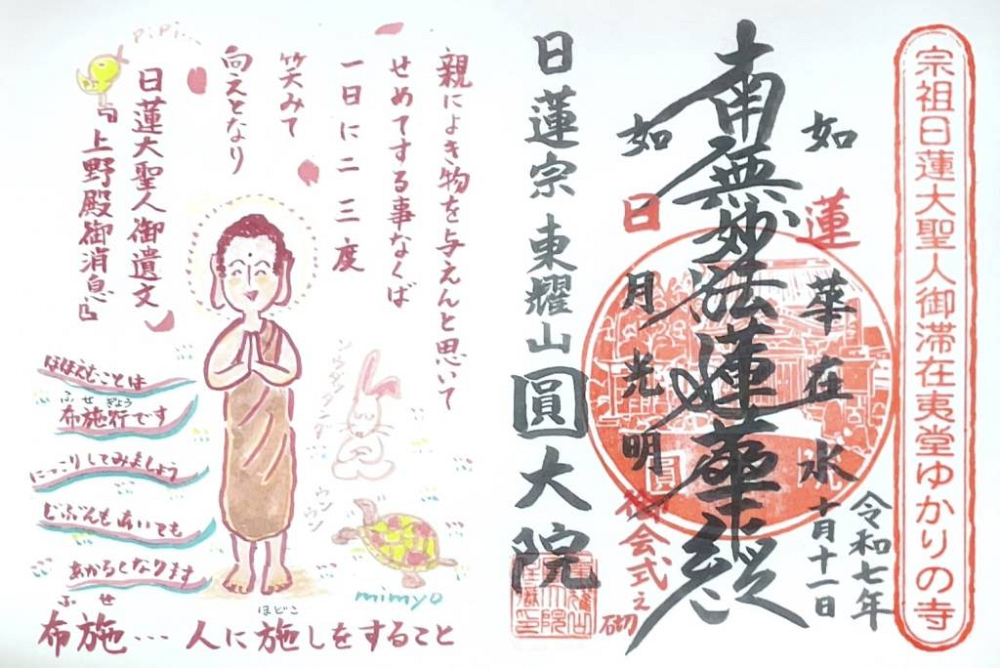 宗祖日蓮大聖人御滞在夷堂ゆかりの寺
令和七年
十月十一日
如蓮華在水
南無妙法蓮華経
如日月光明
御会式之砌
日蓮宗 東耀山 圓大院
親によき物を与えんと思いて
せめてする事なくば
一日に二三度
笑みて
向えとなり
日蓮大聖人御遺文
『上野殿御消息』
PiPi...
ほほえむことは
布施行です
ふせぎょう
にっこりしてみましょう
じぶんもあいても
あかるくなります
ウンウン
mimyo
布施… 人に施しをすること
ふせ
ほどこ